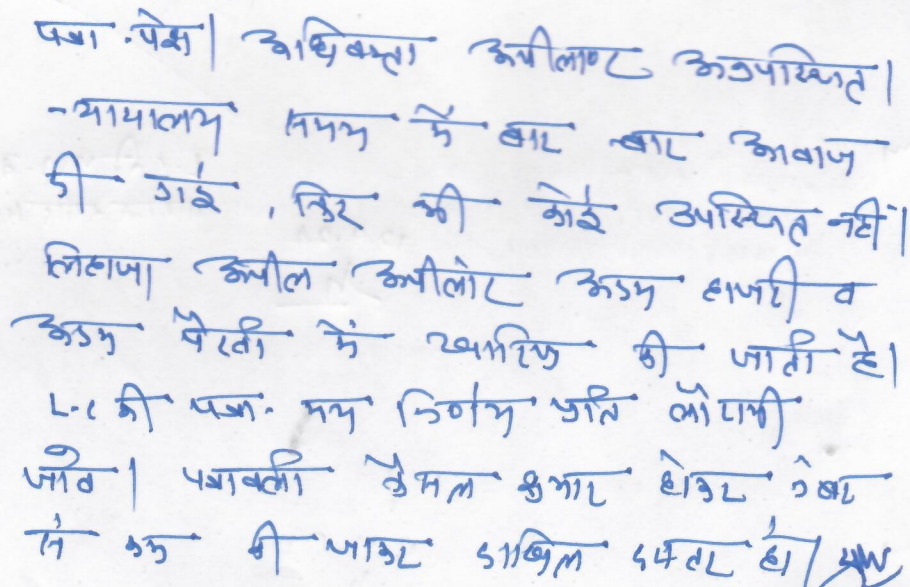 पत्रा. पेश। अधिवक्ता अपीलाण्ट अनुपस्थित।
न्यायालय समय में बार बार आवाज
दी गई, फिर भी कोई उपस्थित नहीं।
लिहाजा अपील अपीलांट अदम हाजरी व
अदम पैरवी में खारिज की जाती है।
L.C की पत्रा. मय निर्णय प्रति लौटायी
जावे। पत्रावली फैसल शुमार होकर नंबर
से कम की जाकर दाखिल दफ्तर हो।